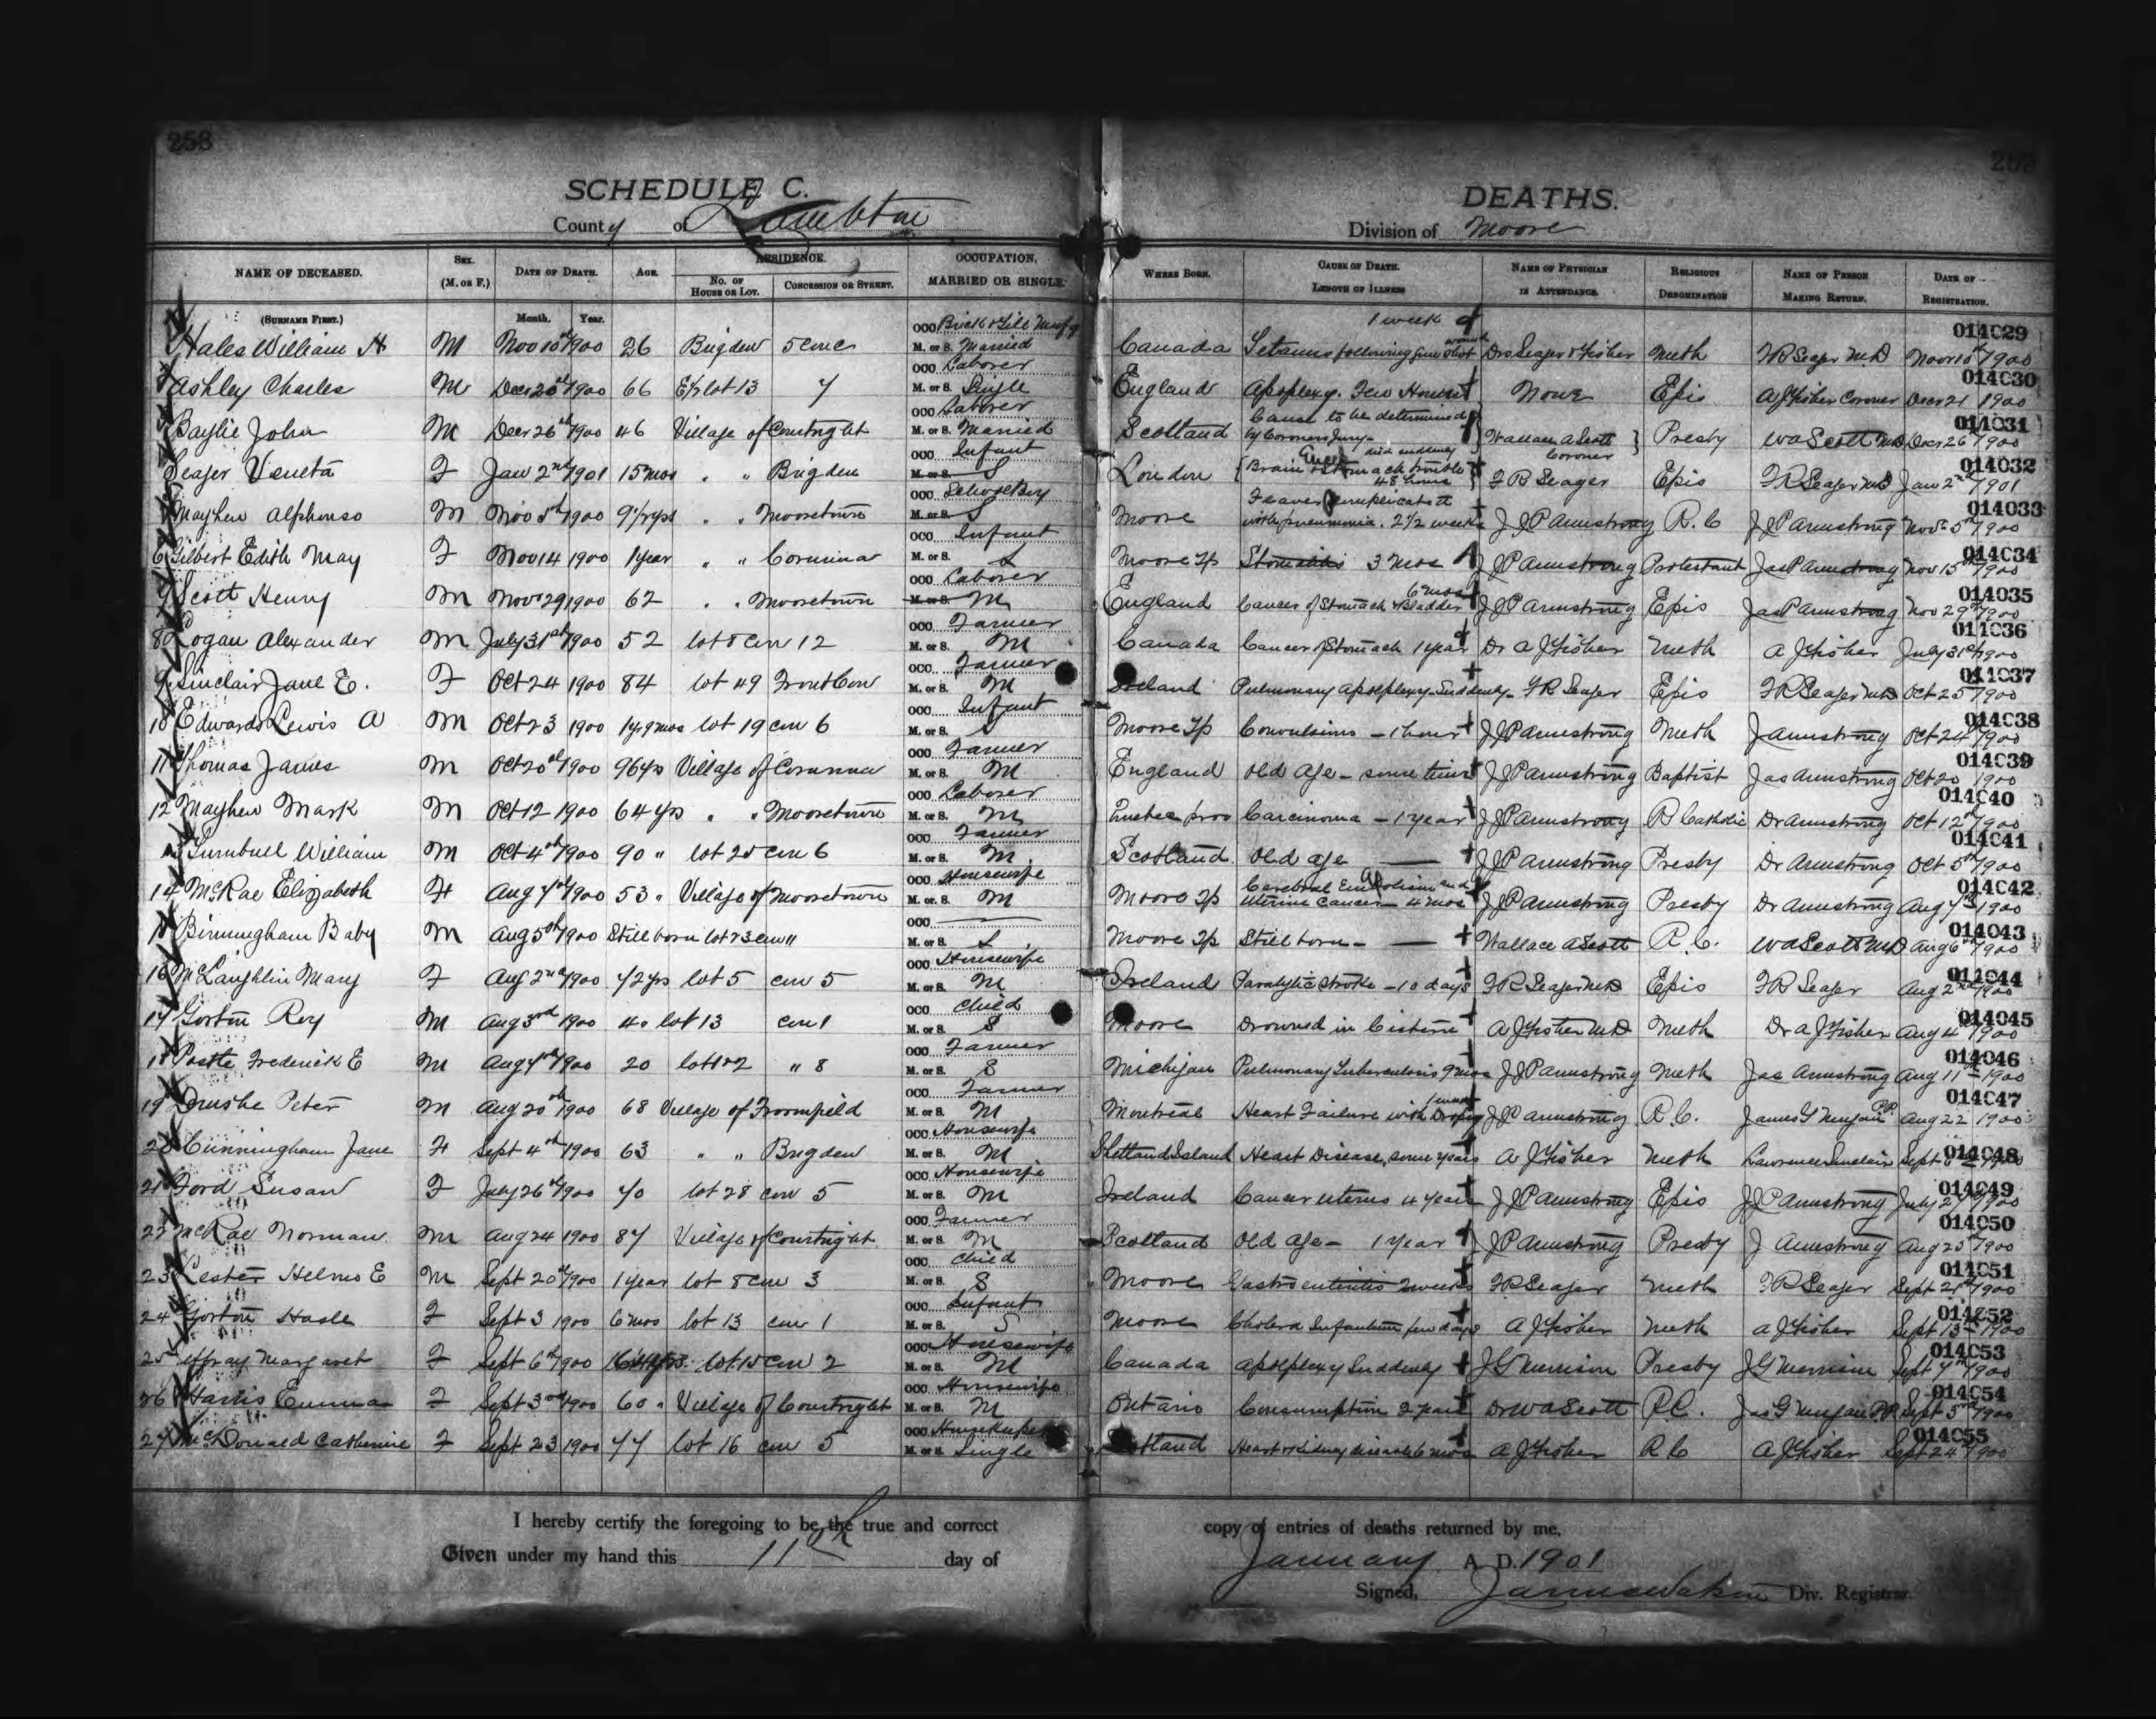 258
SCHEDULE C.
County of Lambton
NAME OF DECEASED. SEX. (M. OR F.) DATE OF DEATH. AGE. RESIDENCE. NO. OF HOUSE OR LOT. CONCESSION OR STREET. OCCUPATION. MARRIED OR SINGLE.
(SURNAME FIRST.) Month. Year.
DEATHS.
Division of Moore
WHERE BORN. CAUSE OF DEATH. LENGTH OF ILLNESS NAME OF PHYSICIAN IN ATTENDANCE. RELIGIOUS DENOMINATION NAME OF PERSON MAKING RETURN. DATE OF REGISTRATION.
Hales William H M Nov 10th 1900 26 Brigden 5 conc OCC Brick & Tile Manfg M. or S. Married Canada Tetanus following gun shot wound 1 week Drs Seager & Fisher Meth F R Seager M.D Nov 10th 1900 014029
Ashley Charles M Decr 20th 1900 66 E½ lot 13 7 OCC Laborer M. or S. Single England Apoplexy. Few Hours None Epis A J Fisher Coroner Decr 21 1900 014030
Baylie John M Decr 26th 1900 46 Village of Courtright OCC Laborer M. or S. Married Scotland Cause to be determined by Coroners Jury - died suddenly Wallace A Scott Coroner Presby W A Scott MD Decr 26th 1900 014031
Seager Veneta F Jan 2nd 1901 15 mos " " Brigden OCC Infant M. or S. S London Brain & Stomach trouble 48 hours F R Seager Epis F R Seager MD Jan 2nd 1901 014032
Mayhew Alphonso M Nov 5th 1900 9½ yrs " " Mooretown OCC School Boy M. or S. S Moore Fever complicated with pneumonia. 2½ weeks J J P Armstrong R. C J J P Armstrong Nov 5th 1900 014033
6 Gilbert Edith May F Nov 14 1900 1 year " " Corunna OCC Infant M. or S. S Moore Tp Stomatitis 3 mos J J P Armstrong Protestant Jas P Armstrong Nov 15th 1900 014034
7 Scott Henry M Nov 29 1900 62 " " Mooretown OCC Laborer M. or S. M England Cancer of Stomach & Bladder 6 mos J J P Armstrong Epis Jas P Armstrong Nov 29th 1900 014035
8 Logan Alexander M July 31st 1900 52 lot 8 con 12 OCC Farmer M. or S. M Canada Cancer of Stomach 1 year Dr A J Fisher Meth A J Fisher July 31st 1900 014036
9 Sinclair Jane E. F Oct 24 1900 84 lot 49 Front Con OCC Farmer M. or S. M Ireland Pulmonary Apoplexy - Suddenly - F R Seager Epis F R Seager MD Oct 25th 1900 014037
10 Edwards Lewis A M Oct 23 1900 1 yr 9 mos lot 19 con 6 OCC Infant M. or S. S Moore Tp Convulsions - 1 hour J J P Armstrong Meth J Armstrong Oct 24th 1900 014038
11 Thomas James M Oct 20th 1900 96 yrs Village of Corunna OCC Farmer M. or S. M England Old Age - some time J J P Armstrong Baptist Jas Armstrong Oct 20 1900 014039
12 Mayhew Mark M Oct 12 1900 64 yrs " " Mooretown OCC Laborer M. or S. M Quebec prov Carcinoma - 1 year J J P Armstrong R Catholic Dr Armstrong Oct 12th 1900 014040
13 Turnbull William M Oct 4th 1900 90 " lot 25 con 6 OCC Farmer M. or S. M Scotland Old age J J P Armstrong Presby Dr Armstrong Oct 5th 1900 014041
14 McRae Elizabeth F Aug 7th 1900 53 " Village of Mooretown OCC Housewife M. or S. M Moore Tp Cerebral Embolism and uterine cancer - 4 mos J J P Armstrong Presby Dr Armstrong Aug 7th 1900 014042
15 Birmingham Baby M Aug 5th 1900 Still born lot 23 con 11 OCC M. or S. S Moore Tp Still born - Wallace A Scott R. C. W A Scott MD Aug 6th 1900 014043
16 McLaughlin Mary F Aug 2nd 1900 72 yrs lot 5 con 5 OCC Housewife M. or S. M Ireland Paralytic stroke - 10 days F R Seager MD Epis F R Seager Aug 2nd 1900 014044
17 Gorton Roy M Aug 3rd 1900 4 " lot 13 con 1 OCC Child M. or S. S Moore Drowned in Cistern A J Fisher MD Meth Dr A J Fisher Aug 4th 1900 014045
18 Postle Frederick E M Aug 9th 1900 20 lot 1 & 2 " 8 OCC Farmer M. or S. S Michigan Pulmonary Tuberculosis 9 mos J J P Armstrong Meth Jas Armstrong Aug 11 - 1900 014046
19 Peter M Aug 20th 1900 68 Village of Froomfield OCC Farmer M. or S. M Montreal Heart Failure with Dropsy J J P Armstrong R. C. James G Mugan PP Aug 22 1900 014047
20 Cunningham Jane F Sept 4th 1900 63 " " Brigden OCC Housewife M. or S. M Shetland Island Heart Disease, some years A J Fisher Meth Lawrence Sinclair Sept 6th 1900 014048
21 Ford Susan F July 26th 1900 70 lot 28 con 5 OCC Housewife M. or S. M Ireland Cancer uterus 4 years J J P Armstrong Epis J J P Armstrong July 27th 1900 014049
22 McRae Norman M Aug 24 1900 87 Village of Courtright OCC Farmer M. or S. M Scotland Old Age - 1 year J J P Armstrong Presby J Armstrong Aug 25th 1900 014050
23 Lester Helmo E M Sept 20th 1900 1 year lot 8 con 3 OCC Child M. or S. S Moore Gastro enteritis 2 weeks F R Seager Meth F R Seager Sept 21st 1900 014051
24 Gorton Hasle F Sept 3 1900 6 mos lot 13 con 1 OCC Infant M. or S. S Moore Cholera Infantum few days A J Fisher Meth A J Fisher Sept 13th 1900 014052
25 Margaret F Sept 6th 1900 lot 15 con 2 OCC Housewife M. or S. M Canada Apoplexy Suddenly J G Merrison Presby J G Merrison Sept 7th 1900 014053
26 Harris Emma F Sept 3rd 1900 60 " Village of Courtright OCC Housewife M. or S. M Ontario Consumption 2 years Dr W A Scott R C. Jas G Mugan P.P. Sept 5th 1900 014054
27 McDonald Catherine F Sept 23 1900 77 lot 16 con 5 OCC Housekeeper M. or S. Single Scotland Heart & Kidney disease 6 mos A J Fisher R C A J Fisher Sept 24th 1900 014055
I hereby certify the foregoing to be the true and correct copy of entries of deaths returned by me,
Given under my hand this 11th day of January A. D. 1901
Signed, Div. Registrar